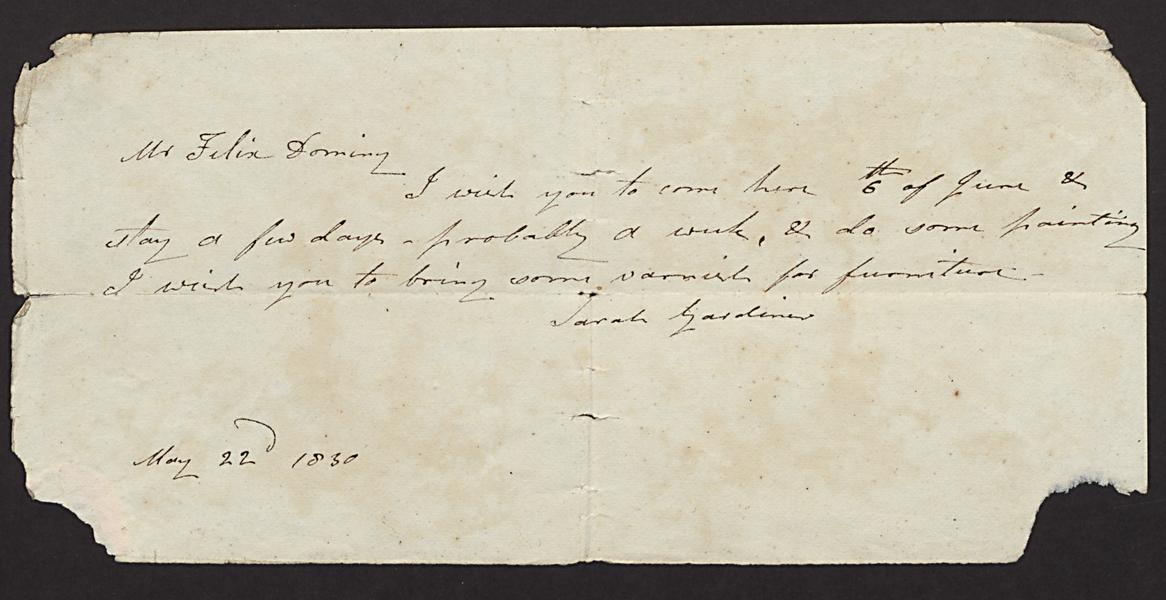 Mr Felix Dominy
I wish you to come here 6th of June &
stay a few days - probably a week, & do some painting
I wish you to bring some varnish for furniture -
Sarah Gardiner
May 22d 1830